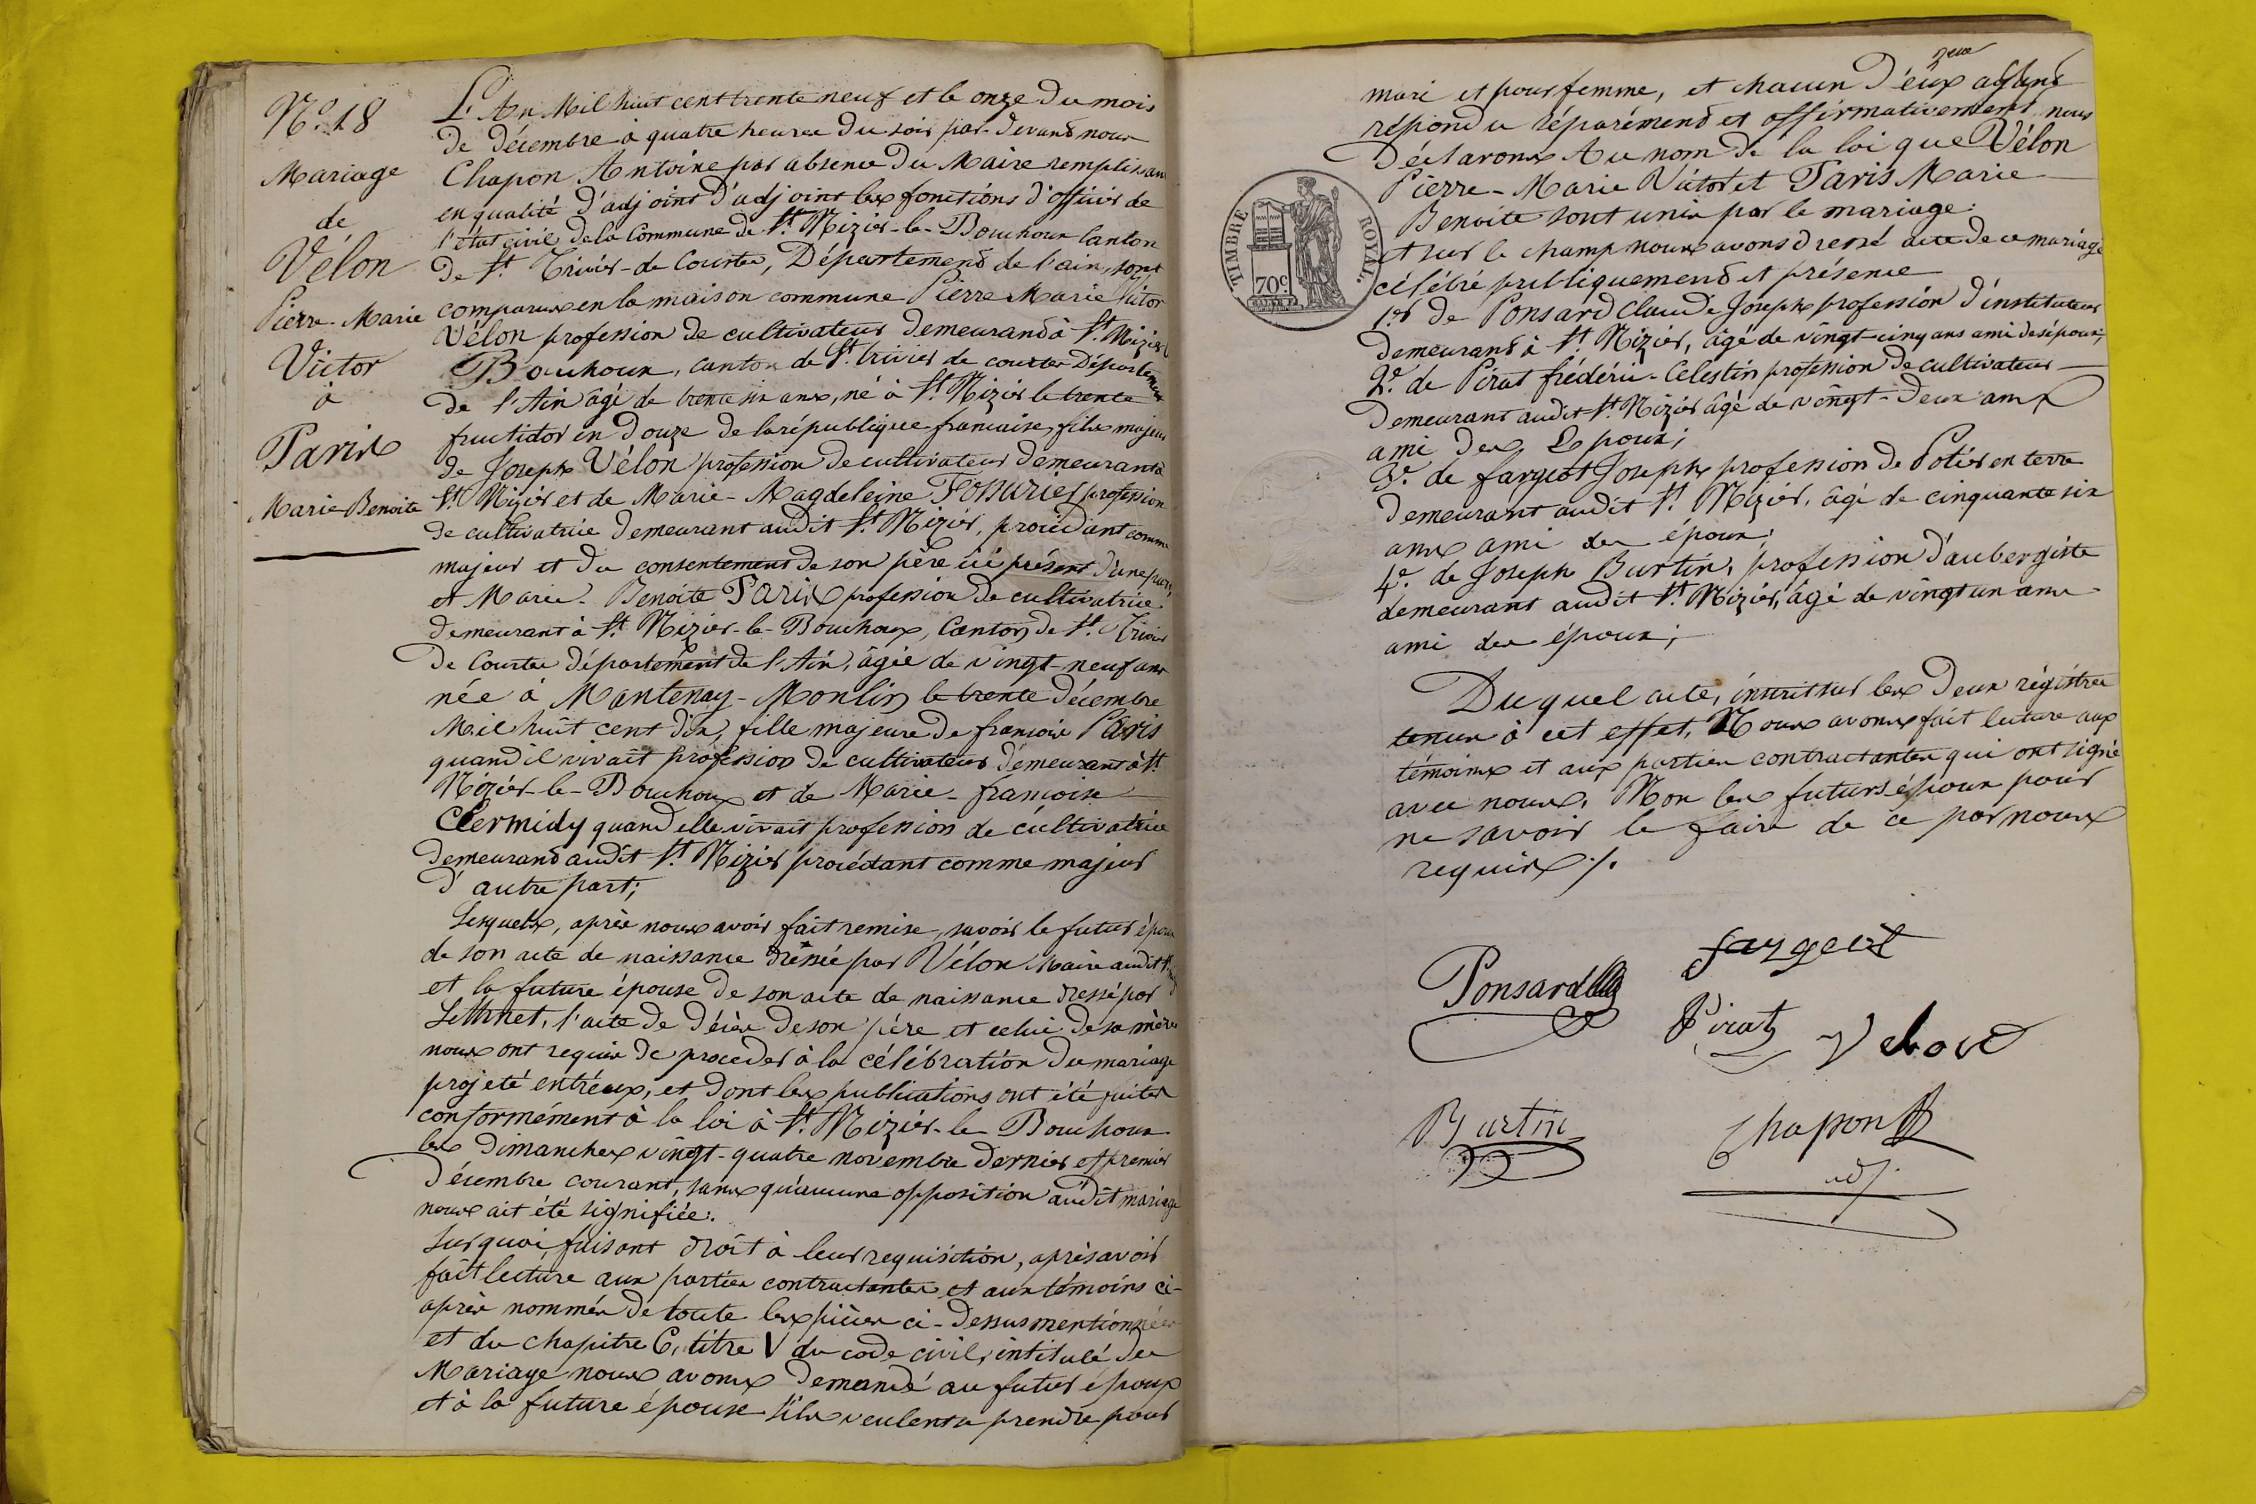 N.º 18
Mariage
de
Vélon
Pierre-Marie
Victor
à
Paris
Marie Benoite
L'An Mil huit cent trente neuf et le onze du mois
de décembre à quatre heures du soir par-devant nous
Chapon Antoine par absence du Maire remplissan
en qualité d'adjoint d'adjoint les fonctions d'officier de
l'état civil de la Commune de St. Nizier-le-Bouchoux Canton
de St. Trivier-de Courtes, Département de l'ain, sont
comparus en la maison commune Pierre Marie Victor
Vélon profession de cultivateur demeurant à St. Nizier
Bouhoux, canton de St. trivier de courtes Département
de l'Ain âgé de trente six ans, né à St. Nizier le trente
fructidor en douze de la république francaise, fils majeur
de Joseph Vélon profession de cultivateur demeurant à
St. Nizier et de Marie-Magdeleine profession
de cultivatrice demeurant audit St. Nizier, procédant comme
majeur et du consentement de son père ici présent d'une part,
et Marie-Benoite Paris profession de cultivatrice
demeurant à St. Nizier-le-Bouchoux, Canton de St. Trivier
de Courtes département de l'Ain, âgée de vingt-neuf ans
née à Mantenay-Monlin le trente décembre
Mil huit cent dix, fille majeure de francois Paris
quand il vivait profession de cultivateur demeurant à St.
Nizier-le-Bouchoux et de Marie-francoise
Clermidy quand elle vivait profession de cultivatrice
demeurant audit St. Nizier procédant comme majeur
d'autre part;
Lesquels, après nous avoir fait remise, savoir le futur époux
de son acte de naissance dressé par Vélon Maire audit St.
et la future épouse de son acte de naissance dressé par
l'acte de décès de son père et celui de sa mère
nous ont requis de proceder à la célébration du mariage
projeté entréeux, et dont les publications ont été faites
conformément à la loi à St. Nizier-le Bouchoux
les dimanches vingt-quatre novembre dernier et premier
décembre courant, sans qu'aucune opposition audit mariage
nous ait été signifiée.
Sur quoi, faisant droit à leur requisition, après avoir
fait lecture aux parties contractantes et aux témoins ci-
après nommés de toute les pièces ci-dessus mentionnées
et du chapitre 6, titre V du code civil, intitulé du
Mariage nous avons demandé au futur époux
et à la future épouse s'ils veulent se prendre pour
mari et pour femme, et chacun d'eux ayant
répondu séparément et affirmativement nous
déclarons Au nom de la loi que Vélon
Pierre-Marie Victor et Paris Marie
Benoite sont unis par le mariage.
et sur le champ nous avons dressé acte de ce mariage
célébré publiquement et présence
1er de Ponsard Claude Joseph profession d'instituteur
demeurant à St. Nizier, âgé de vingt-cinq ans ami des époux,
2e. de Pirat frédéric-Celestin profession de cultivateur
demeurant audit St. Nizier âgé de vingt-deux ans
ami des Epoux;
3e. de fargeot Joseph profession de Potier en terre
demeurant audit St. Nizier, âgé de cinquante six
ans ami des époux;
4e. de Joseph Burtin, profession d'aubergiste
demeurant audit St. Nizier, âgé de vingt un ans
ami des époux;
Du quel acte, inscrit sur les deux régistres
tenus à cet effet, Nous avons fait lecture aux
témoins et aux parties contractantes qui ont signé
avec nous, Non les futurs époux pour
ne savoir le faire de ce par nous
requis ./.
TIMBRE ROYAL.
70c
Ponsard
fargeot
Pirat
Velon
Burtin
Chapon
adj.